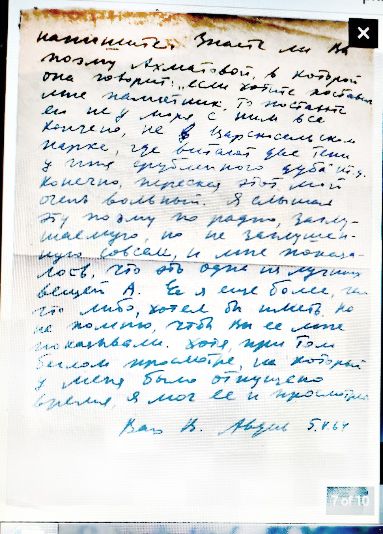 напишите. Знаете ли Вы
поэму Ахматовой, в которой
она говорит: „если хотите поставить
мне памятник, то поставьте
его не у моря, с ним все
кончено, не в Царскосельском
парке, где витают две тени
у пня срубленного дуба" и т.д.
Конечно, пересказ этот мой
очень вольный. Я слышал
эту поэму по радио, заглу-
шаемую, но не заглушен-
ную совсем, и мне показа-
лось, что это одна из лучших
вещей А. Ее я еще более, чем
что либо, хотел бы иметь, но
не помню, чтобы Вы ее мне
показывали. Хотя, при том
беглом просмотре, на который
у меня было отпущено
время, я мог ее и просмотреть
Ваш В. 5.V 64
7 of 10